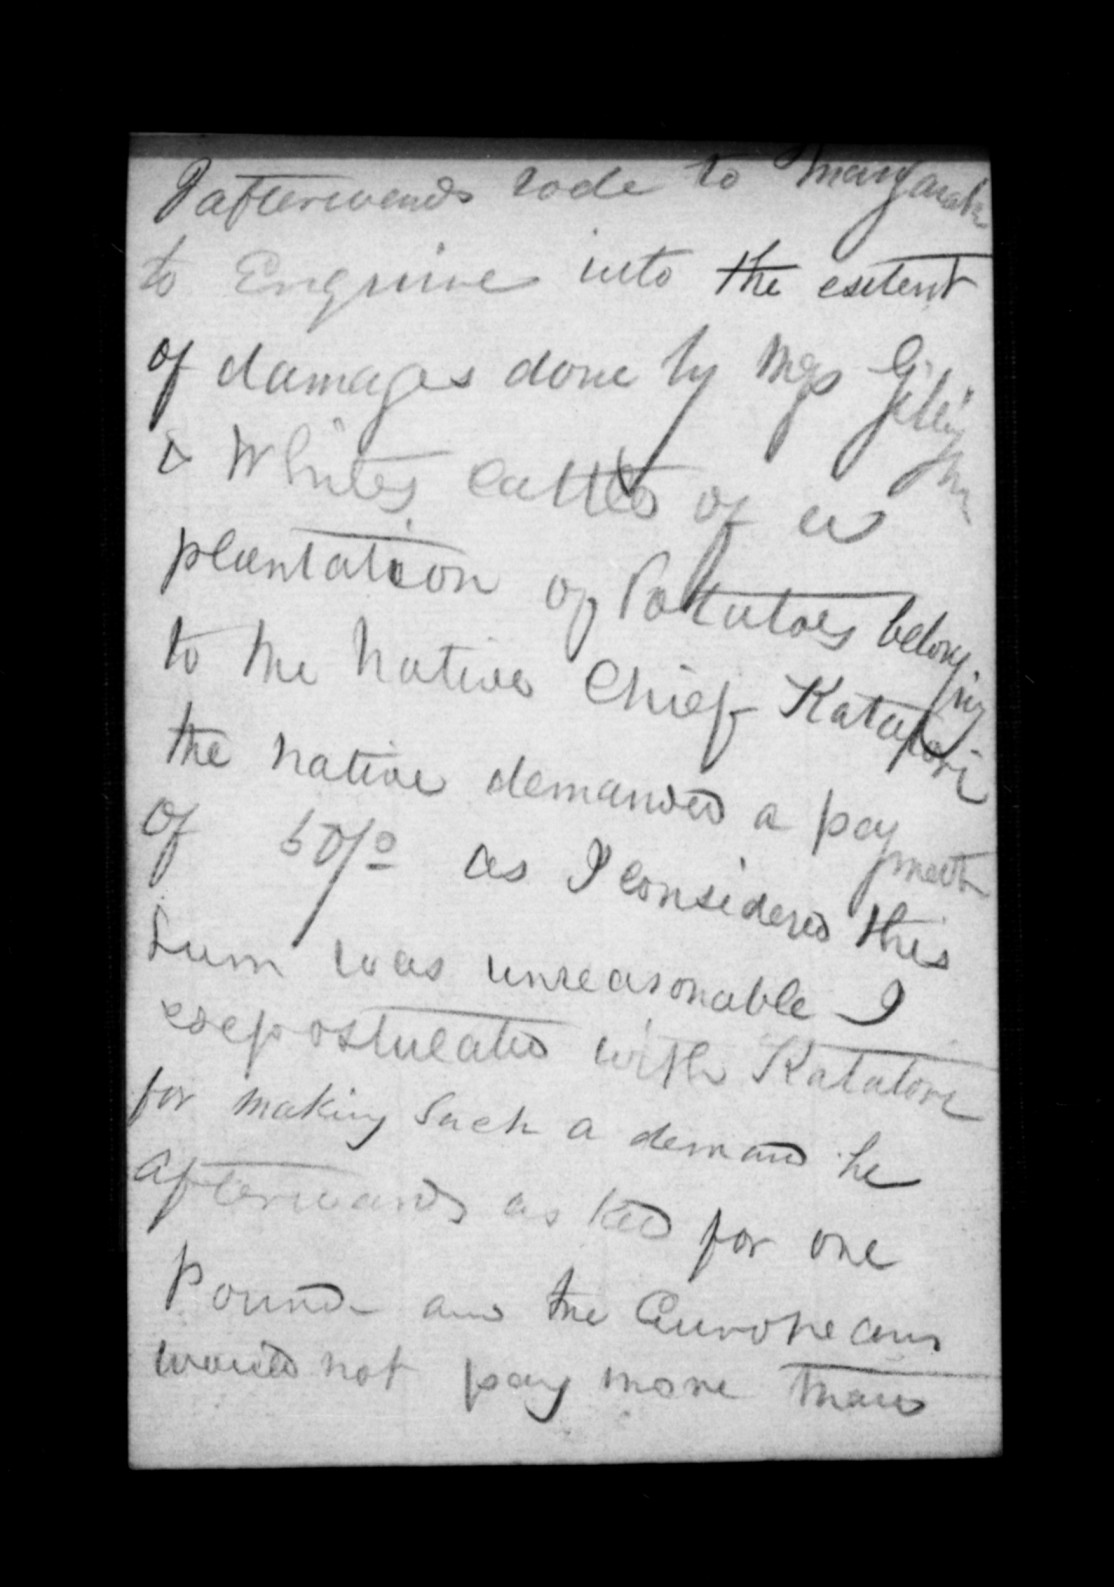 I afterwards rode to
to Enquire into the extent
of damages done by Mess
& Whites cattle of a
plantation of Potatoes belonging
to the Native Chief Katatori
the native demanded a payment
of 50/0 as I considered this
Sum was unreasonable I
expostulated with Katatore
for making Such a demand he
afterwards asked for one
Pound and the Europeans
would not pay more than